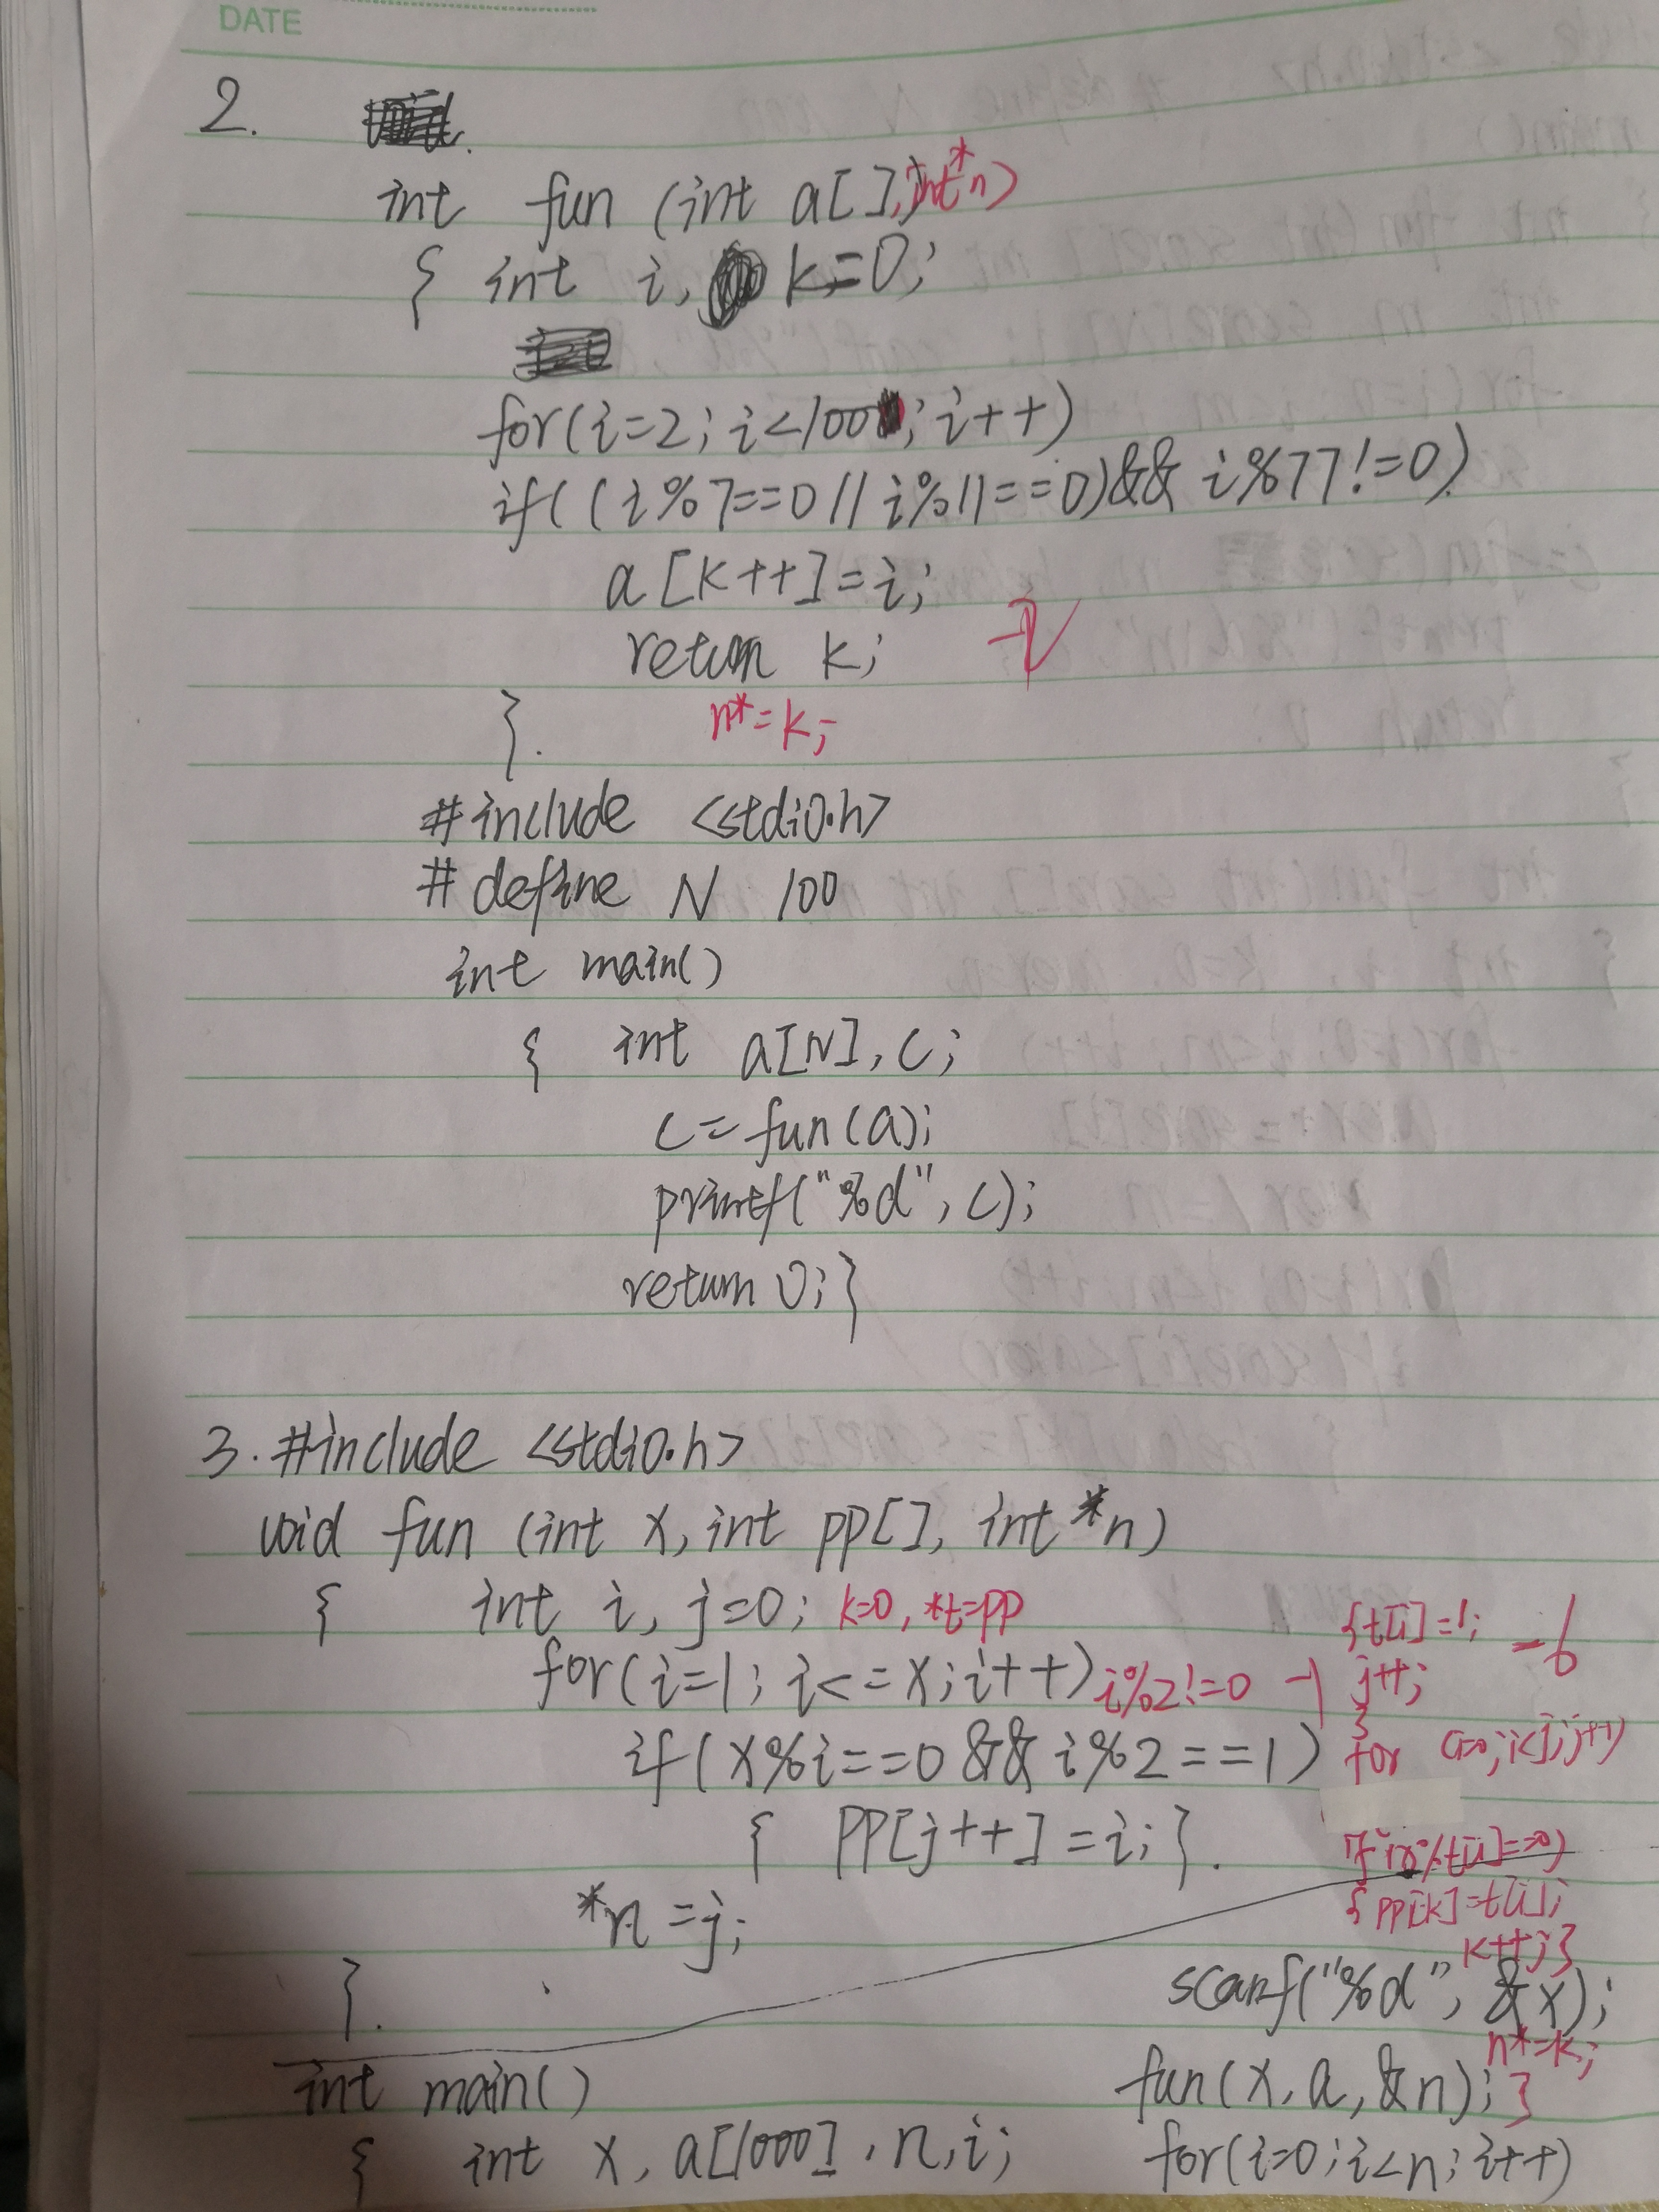 DATE
2.
int fun (int a[], int *n)
{ int i, k=0;
for(i=2; i<100; i++)
if((i%7==0 || i%11==0)&& i%77!=0)
a[k++]=i;
return k;
n*=k;
}.
#include <stdio.h>
#define N 100
int main()
{ int a[N], c;
c=fun(a);
printf("%d", c);
return 0;}
3. #include <stdio.h>
void fun (int x, int pp[], int *n)
{ int i, j=0; k=0, *t=pp
for(i=1; i<=x; i++) i%2!=0
if(x%i==0 && i%2==1)
{ pp[j++]=i;}.
*n=j;
}.
{t[j]=i;
j++;
}
-6
for (i=0; i<j; j++)
{pp[k]=t[i];
k++;}
n*=k;
}
int main()
{ int x, a[1000], n, i;
scanf("%d", &x);
fun(x, a, &n);
for(i=0; i<n; i++)